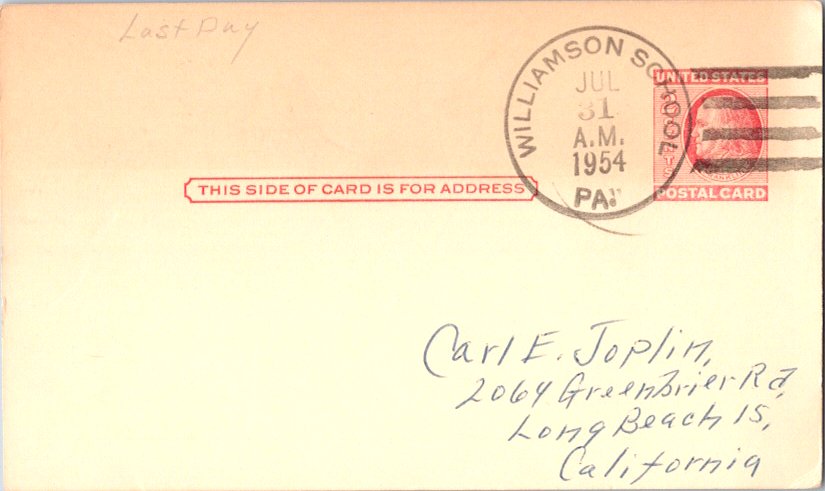 Last Day
WILLIAMSON SCHOOL
JUL
31
A.M.
1954
PA.
UNITED STATES
POSTAL CARD
THIS SIDE OF CARD IS FOR ADDRESS
Carl E. Joplin,
2064 Greenbrier Rd,
Long Beach 15,
California